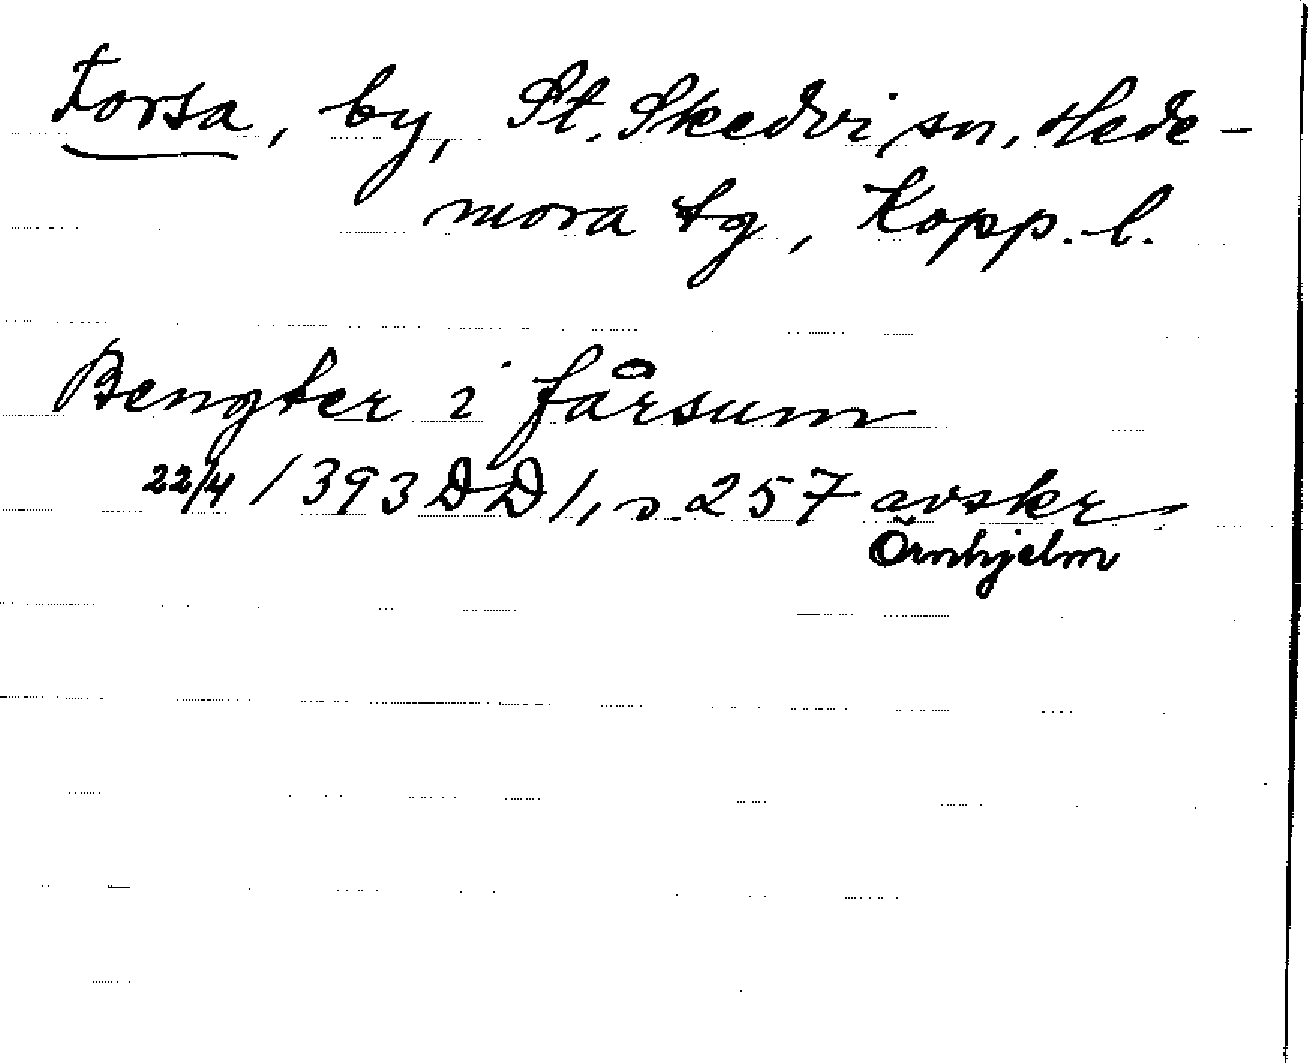 Forsa, by, St. Skedvi sn, Hede-
mora tg, Kopp. l.
Bengter i fårsum
22/4 1393 DD 1, s. 257 avskr
Örnhjelm